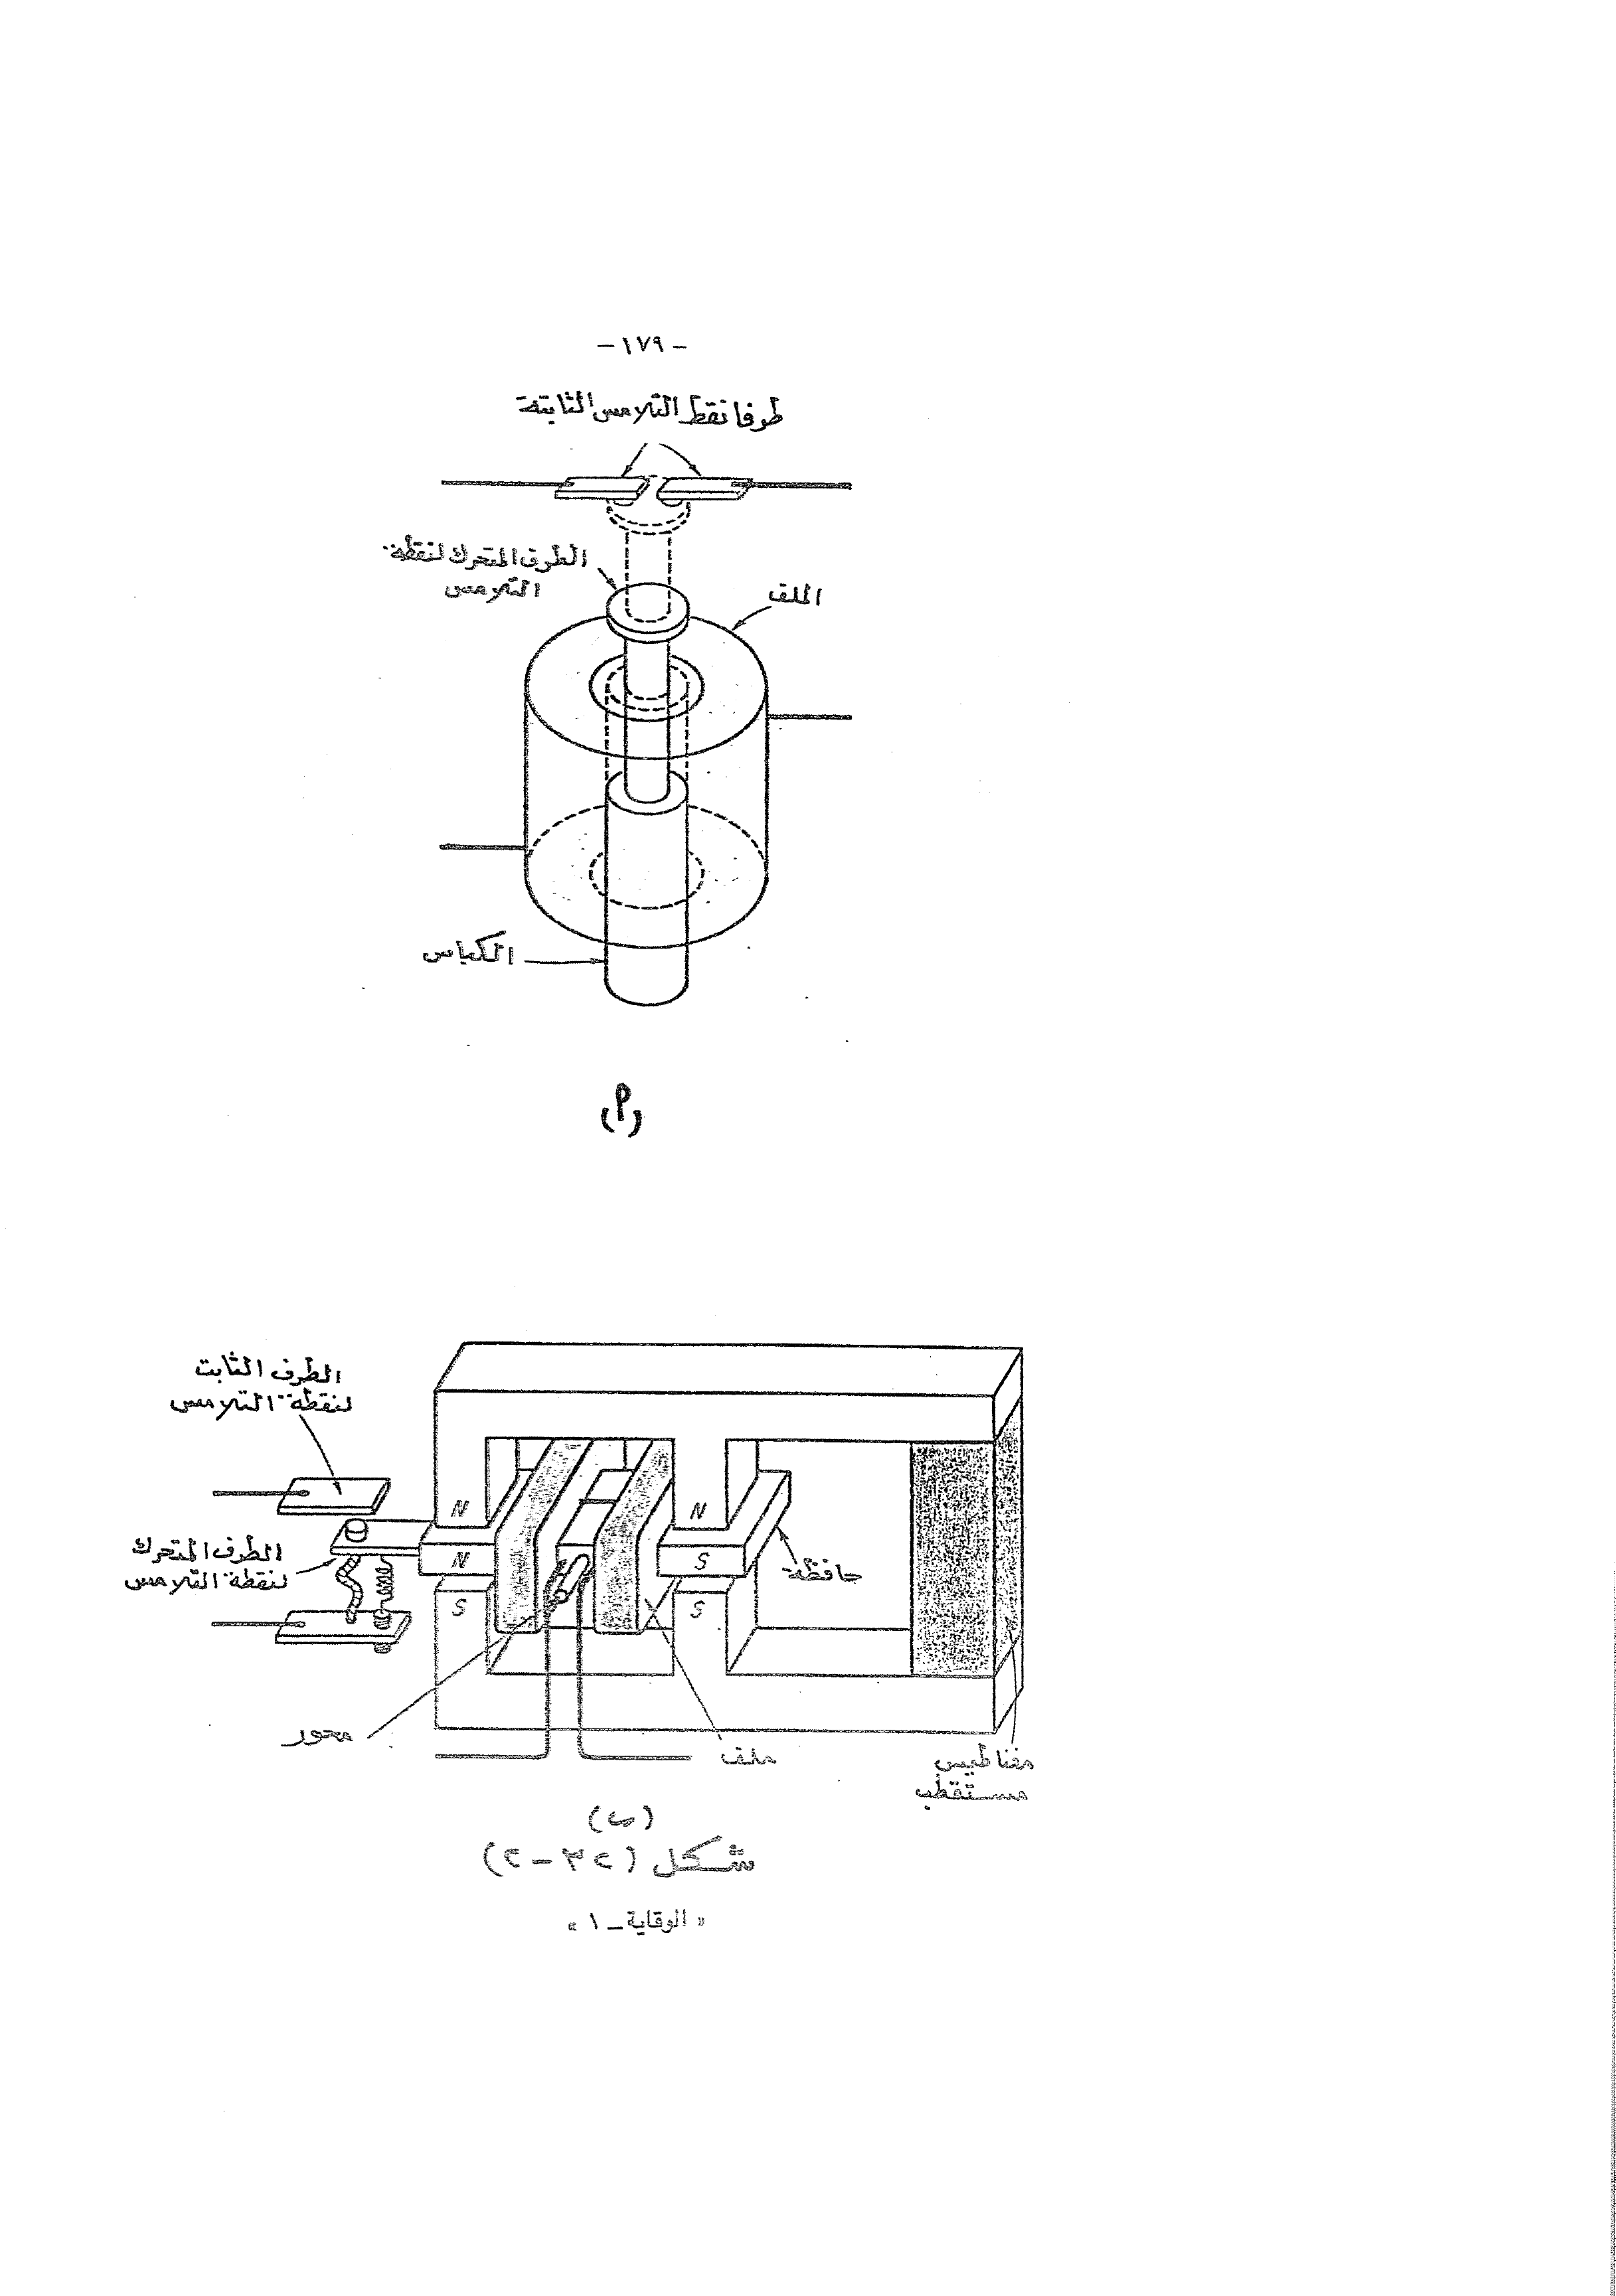 -١٧٩-
طرفا نقط التلامس الثابتة
الطرف المتحرك لنقطة
التلامس
الملف
الكباس
(أ)
الطرف الثابت
لنقطة التلامس
N
N
الطرف المتحرك
لنقطة التلامس
N
S
حافظة
S
S
محور
ملف
مغناطيس
مستقطب
(ب)
شكل (٢٣-٢)
« الوقاية - ١ »